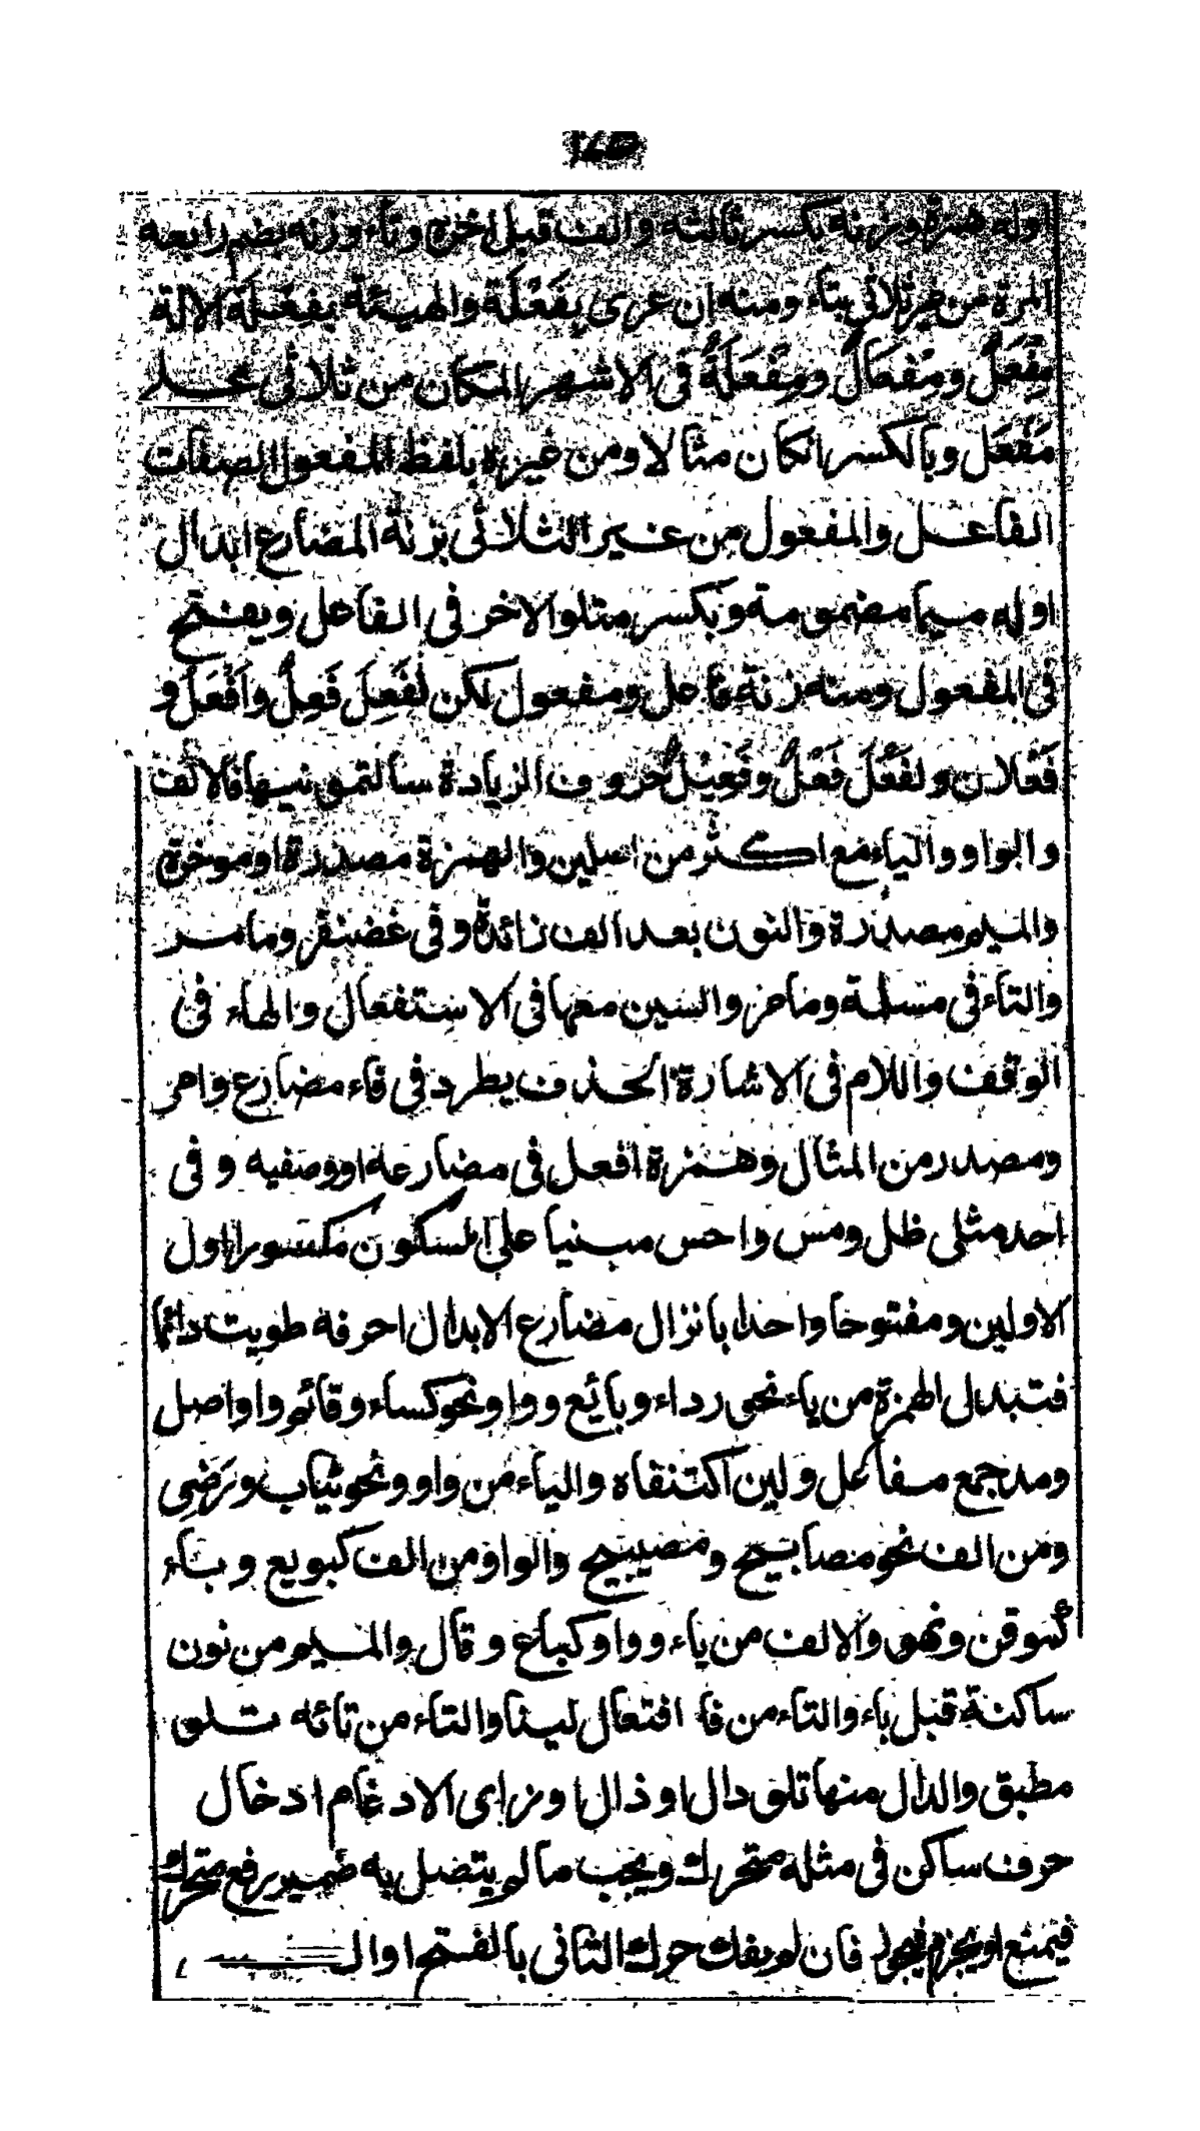 اوله همزة وزنه بكسر ثالثه والف قبل اخره وتاء وزنه بضم رابعه
المرة من غير ثلاثي بتاء ومنه ان عرى بفَعْلَة والهيئة بفِعْلَة الالة
مِفْعَلٌ ومِفْعَالٌ ومِفْعَلَةٌ في الاشهر المكان من ثلاثي على
مَفْعَل وبالكسر انكان مثالا ومن غيره بلفظ المفعول الصفات
الفاعل والمفعول من غير الثلاثي بزنة المضارع ابدال
اوله ميما مضمومة وبكسر متلو الاخر في الفاعل ويفتح
في المفعول ومنه زنة فاعل ومفعول لكن لفَعِلَ فَعِلٌ وافْعَلُ و
فَعْلان ولفَعُلَ فَعْلٌ وفَعِيْلٌ حروف الزيادة سالتمونيها فالالف
والواو والياء مع اكثر من اصلين والهمزة مصدرة او موخرة
والميم مصدرة والنون بعد الف زائدة وفي غضنفر وما مر
والتاء في مسلمة وما مر والسين معها في الاستفعال والهاء في
الوقف واللام في الاشارة الحذف يطرد في فاء مضارع وامر
ومصدر من المثال وهمزة افعل في مضارعه او وصفيه و في
احد مثلي ظل ومس واحس مبنيا على السكون مكسورا اول
الاولين ومفتوحا واحدا بانزال مضارع الابدال احرفه طويت دائما
فتبدل الهمزة من ياء نحو رداء وبائع وواو نحو كساء وقائم واواصل
ومد جمع مفاعل ولين اكتنفاه والياء من واو ونحو ثياب ورَضِى
ومن الف نحو مصابيح ومصيبيح والواو من الف كبويع و ياء
كموقن ونهو والالف من ياء وواو كباع و قال والميم من نون
ساكنة قبل باء والتاء من فا افتعال لينا والتاء من تائه تلو
مطبق والدال منها تلو دال او ذال او زاى الادغام ادخال
حرف ساكن في مثله متحرك ويجب ما لم يتصل به ضمير رفع متحرك
فيمتنع او يجزم فيجوز فان لم يفك حرك الثاني بالفتح اوال